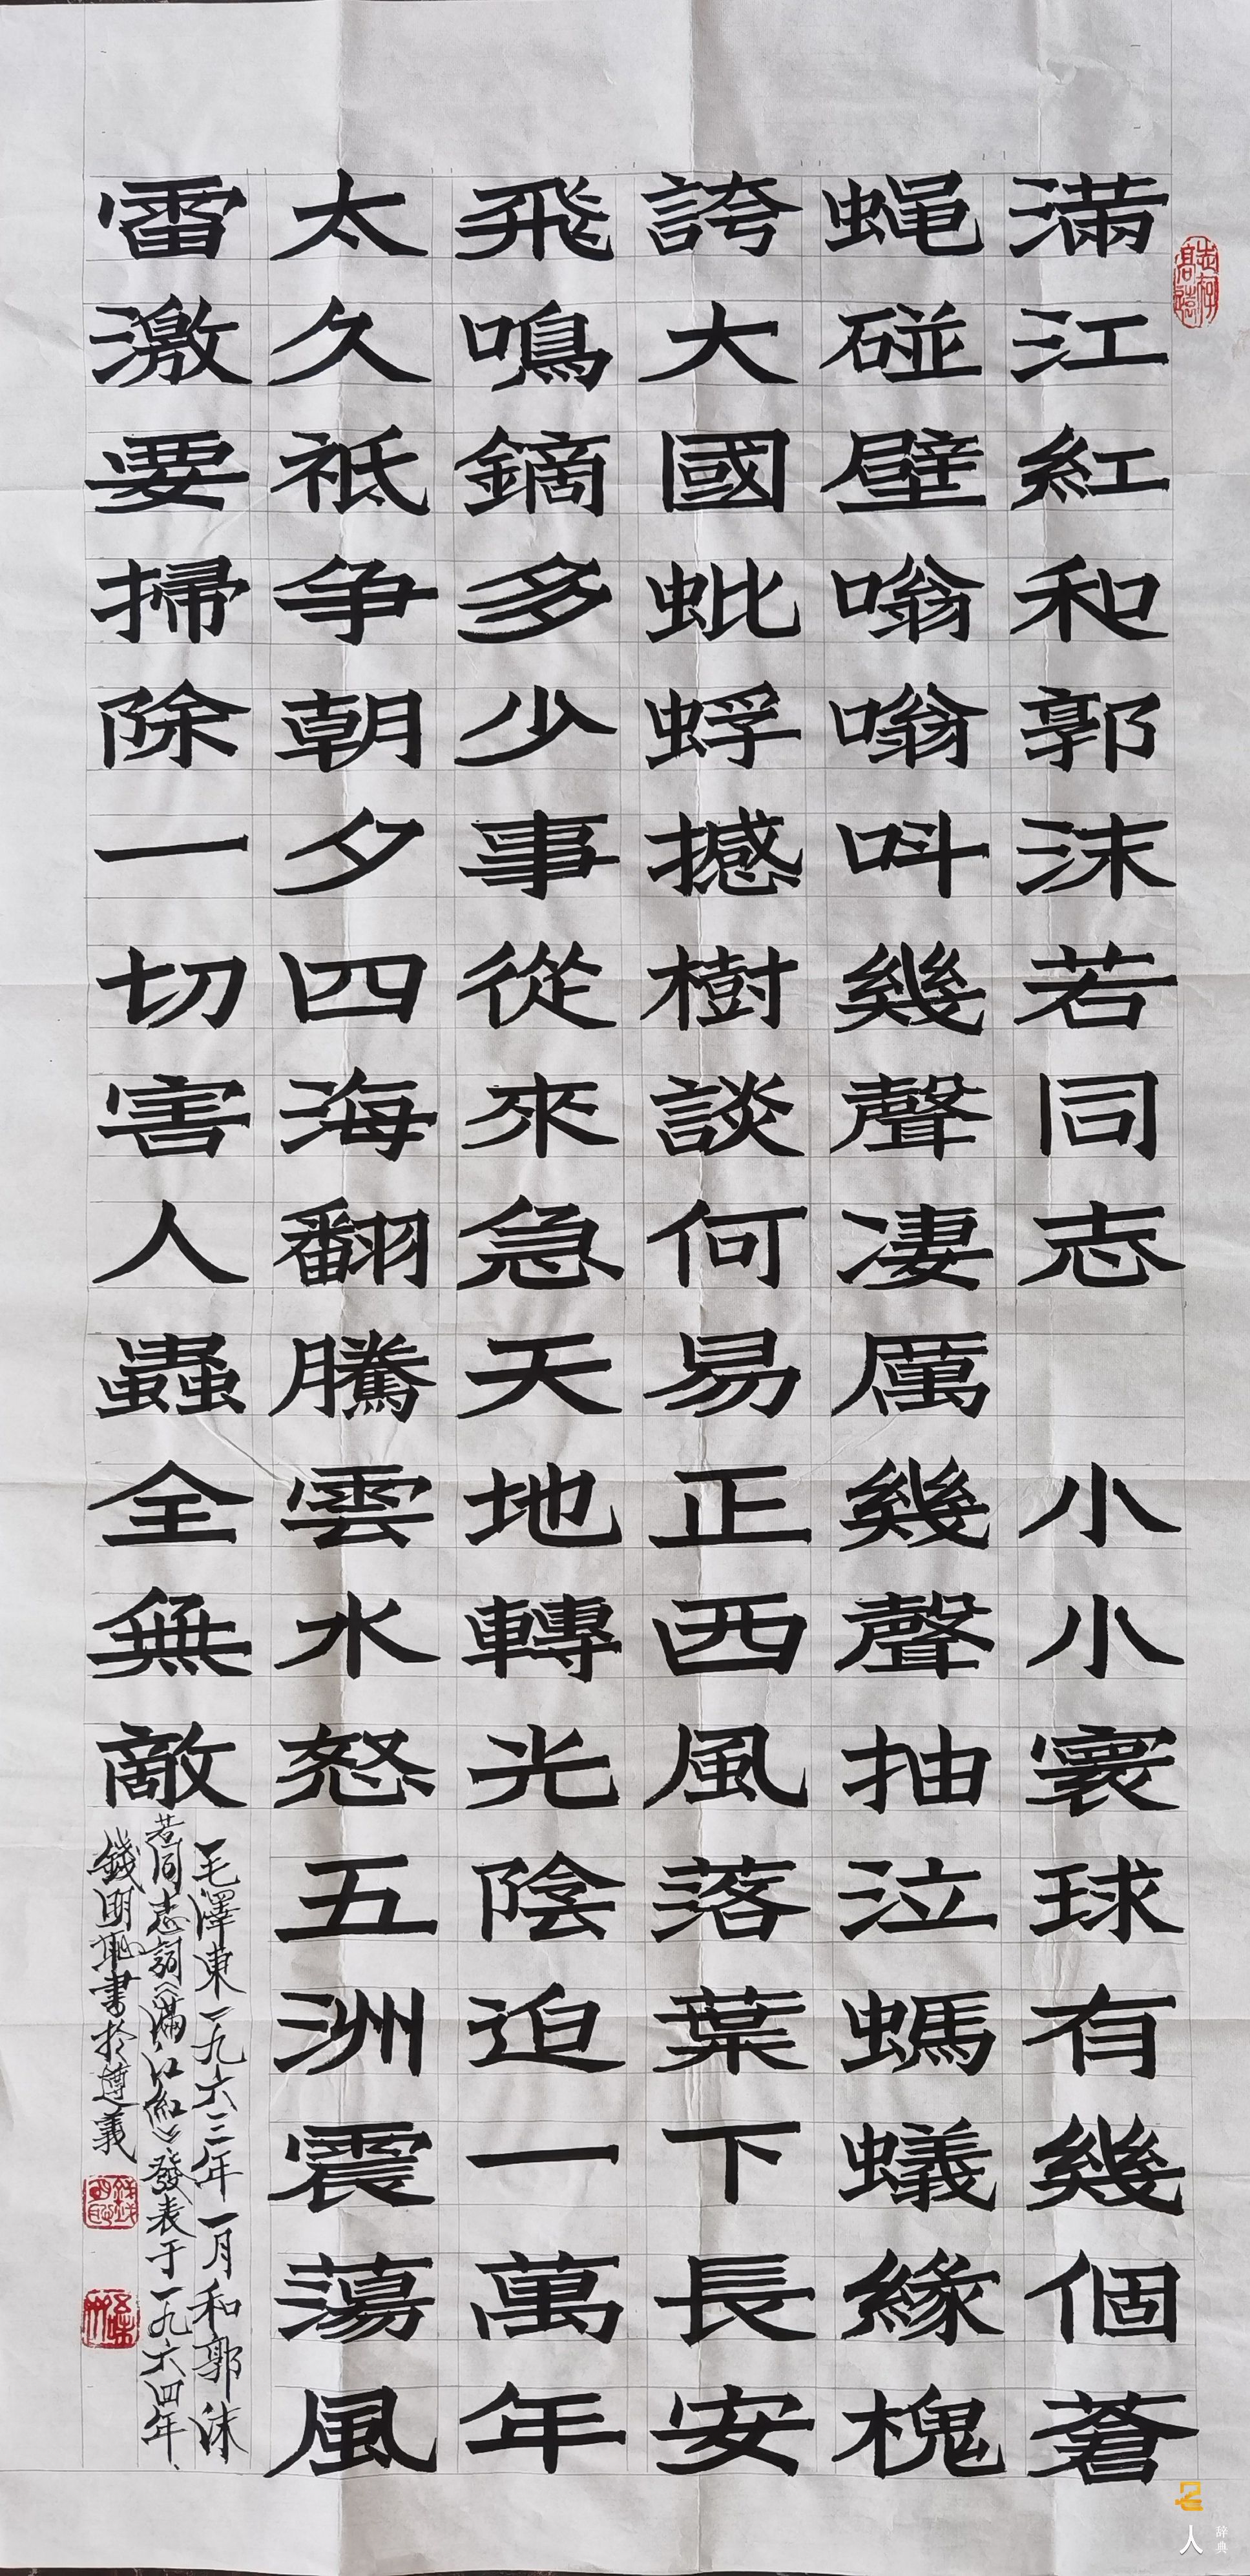 志存高遠
滿江紅和郭沫若同志 小小寰球有幾個蒼
蝇碰壁嗡嗡叫幾聲凄厲幾聲抽泣螞蟻緣槐
誇大國蚍蜉撼樹談何易正西風落葉下長安
飛鳴鏑多少事從來急天地轉光陰迫一萬年
太久祇争朝夕四海翻騰雲水怒五洲震蕩風
雷激要掃除一切害人蟲全無敵
毛澤東一九六三年一月和郭沫
若同志詞《滿江紅》發表于一九六四年、
錢明恥書於遵義
名人
辞典